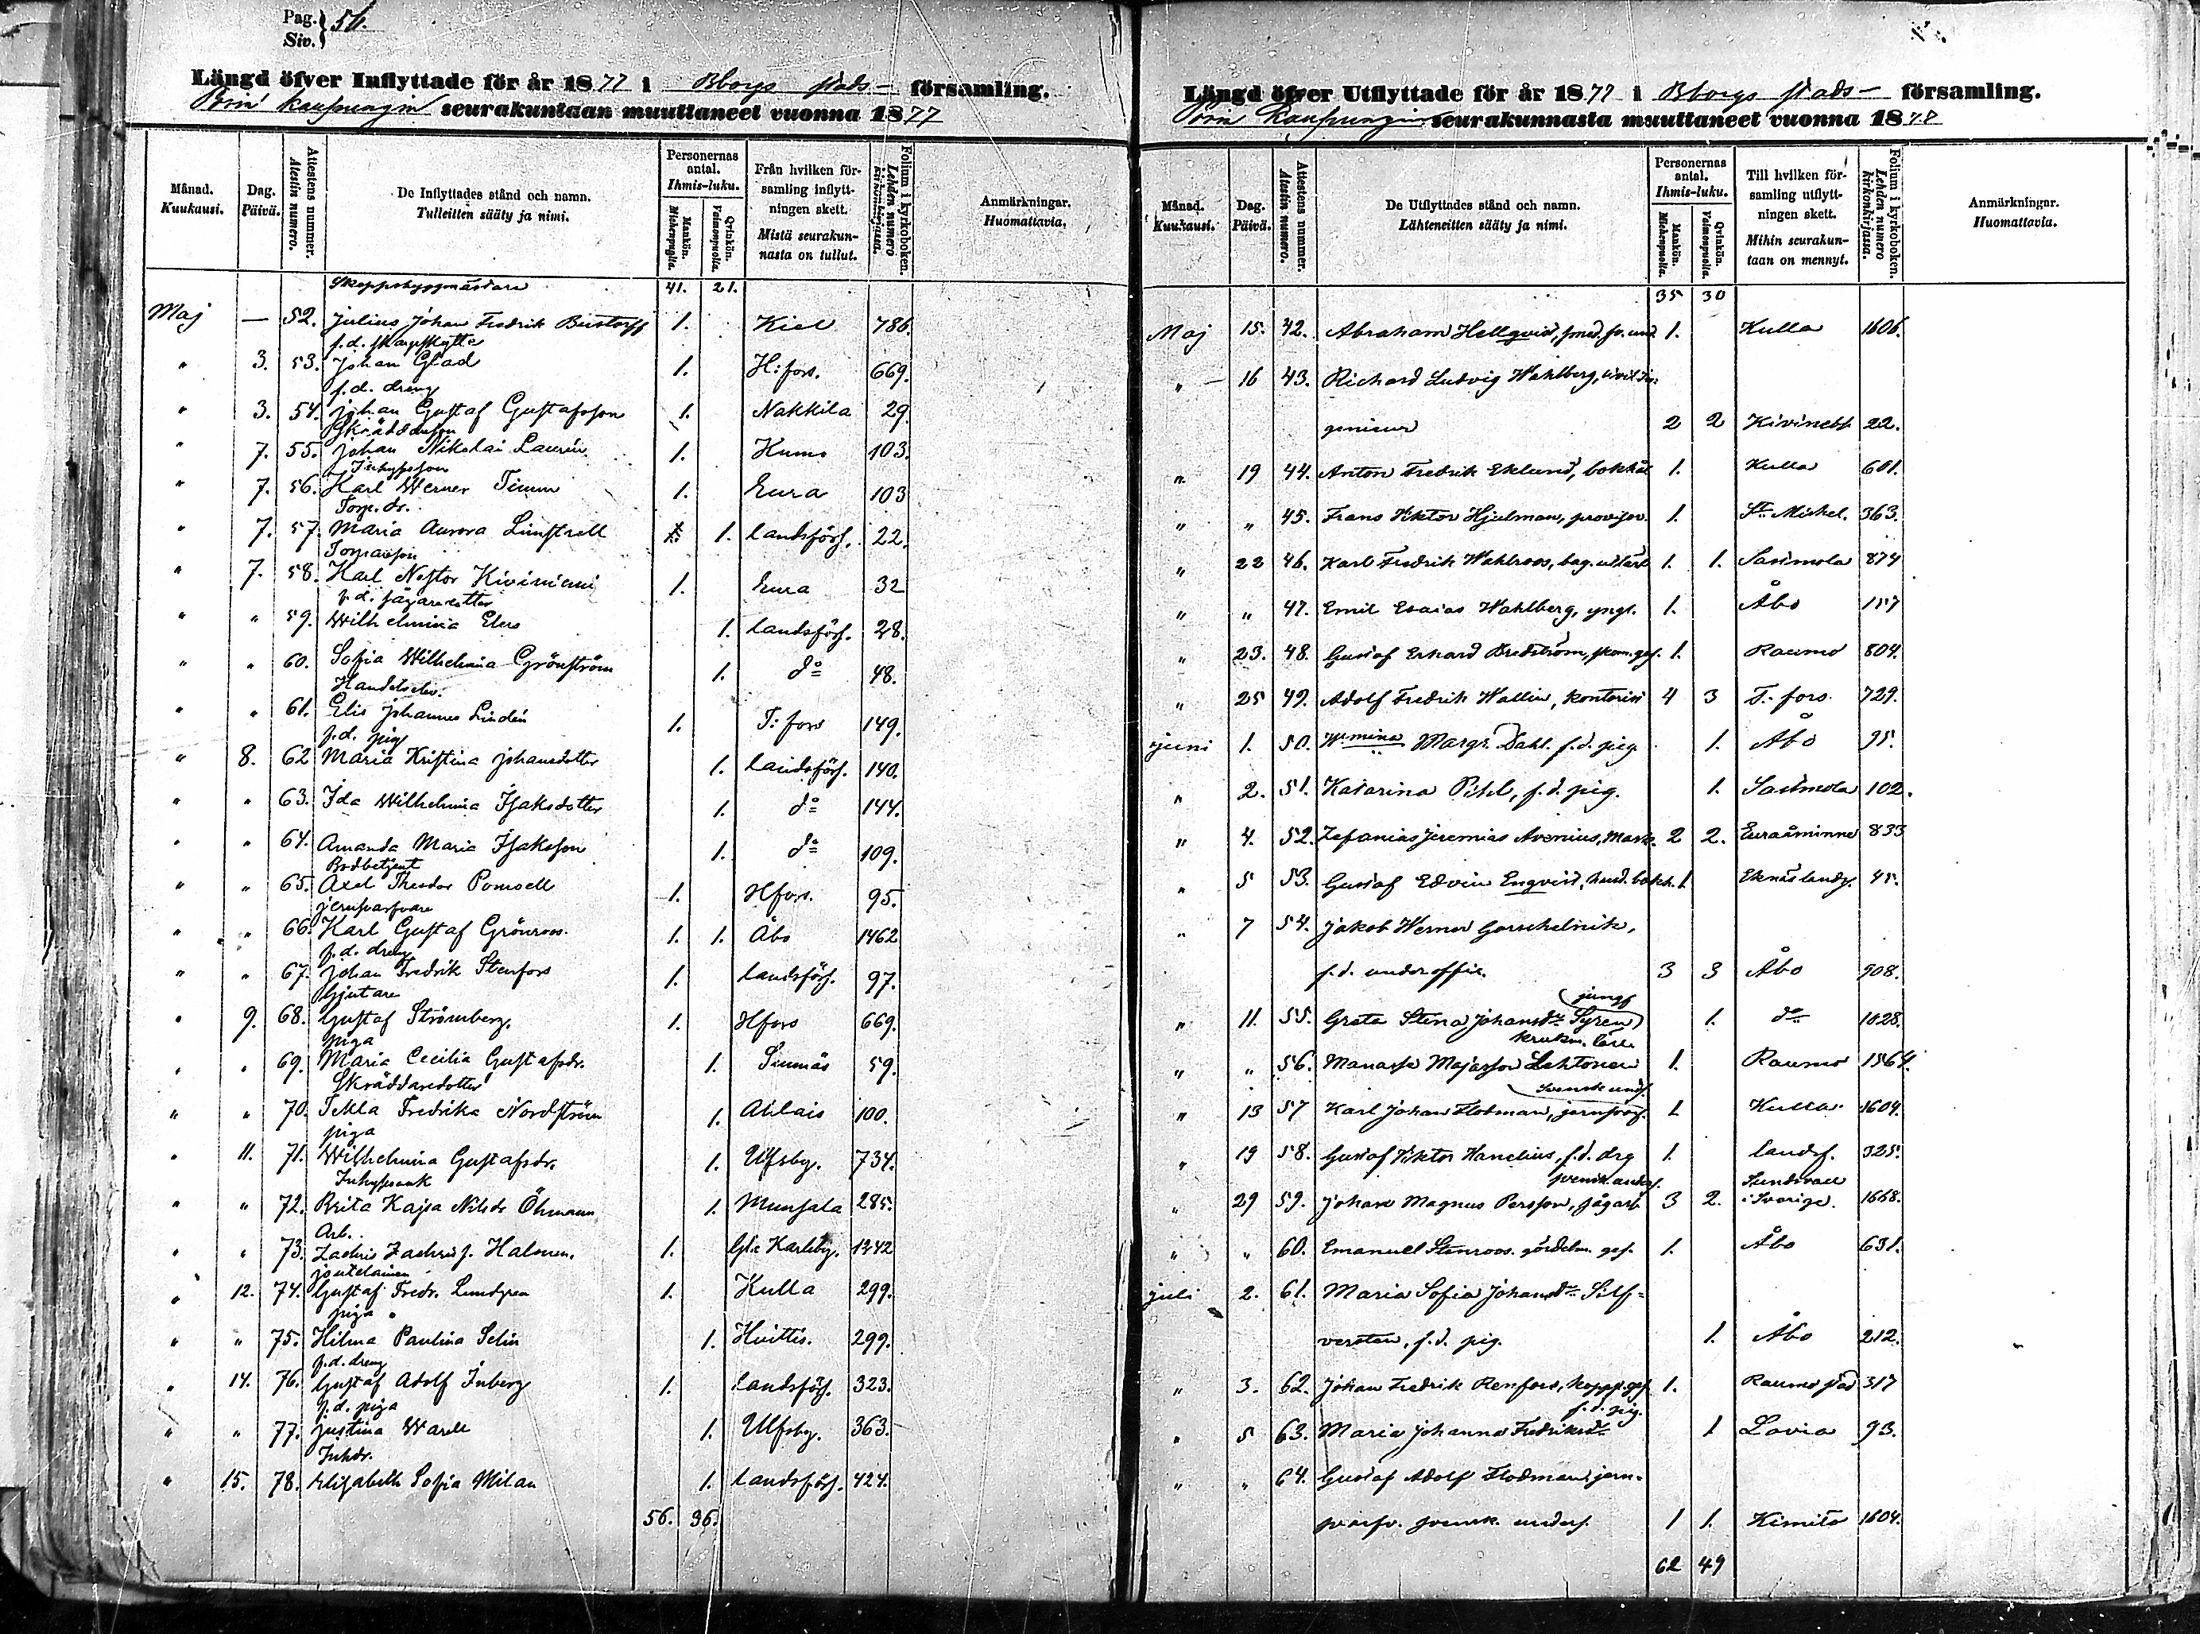 Pag. Siv. } 56.
Längd öfver Inflyttade för år 1877 i Bborgs stads- församling.
Porin kaupungin seurakuntaan muuttaneet vuonna 1877
Månad. Kuukausi.
Dag. Päivä.
Attestens nummer. Atestin numero.
De Inflyttades stånd och namn. Tulleitten sääty ja nimi.
Personernas antal. Ihmis-luku.
Mankön. Miehenpuolia.
Qvinkön. Vaimonpuolia.
Från hvilken församling inflyttningen skett. Mistä seurakunnasta on tullut.
Folium i kyrkoboken. Lehden numero kirkonkirjassa.
Anmärkningar. Huomattavia.
Skeppsbyggmästare 41. 21.
Maj — 52. Julius Johan Fredrik Bustorff 1. Kiel 786.
f.d. skarpskytte
" 3. 53. Johan Glad 1. H:fors. 669.
f.d. dreng
" 3. 54. Johan Gustaf Gustafsson 1. Nakkila 29.
Skräddareson
" 7. 55. Johan Nikolai Laurén 1. Kumo 103.
Inhysson
" 7. 56. Karl Werner Timm 1. Eura 103
Torp. dr.
" 7. 57. Maria Aurora Limstrell 1. landsförs. 22.
Torpareson
" 7. 58. Karl Nestor Kiviniemi 1. Eura 32
f.d. jägaredotter
" " 59. Wilhelmina Elers 1. landsförs. 28.
" " 60. Sofia Wilhelmina Grönström 1. do 48.
Handelselev.
" " 61. Elis Johannes Lindén 1. T:fors 149.
f.d. pig
" 8. 62 Maria Kristina Johansdotter 1. landsförs. 140.
" " 63. Ida Wilhelmina Isaksdotter 1. do 144.
" " 64. Amanda Maria Isaksson 1. do 109.
Bodbetjent
" " 65. Axel Theodor Pomoell 1. Hfors. 95.
jernarfvare
" " 66. Karl Gustaf Grönroos. 1. 1. Åbo 1462
f.d. dreng
" " 67. Johan Fredrik Stenfors 1. landsförs. 97.
Gjutare
" 9. 68. Gustaf Strömberg. 1. Hfors 669.
piga
" " 69. Maria Cecilia Gustafsdr. 1. Sinnäs 59.
Skräddaredotter
" " 70. Tekla Fredrika Nordström 1. Ahlais 100.
piga
" 11. 71. Wilhelmina Gustafsdr. 1. Ulfsby. 734.
Inhysenk
" " 72. Brita Kajsa Nilsdr Öhmann 1. Munsala 285.
Arb.
" " 73. Zachris Zachriss. Halonen. 1. Gla Karleby. 1342
joutelainen
" 12. 74. Gustaf Fredr. Lundgren 1. Kulla 299.
piga
" " 75. Hilma Paulina Selin 1. Huittis. 299.
f.d. dreng
" 14. 76. Gustaf Adolf Inberg 1. landsförs. 323.
f.d. piga
" " 77. Justina Warell 1. Ulfsby. 363.
Inhdr.
" 15. 78. Elisabeth Sofia Milan 1. landsförs. 424.
56. 36.
Längd öfver Utflyttade för år 1877 i Bborgs stads- församling.
Porin kaupungin seurakunnasta muuttaneet vuonna 1878
Månad. Kuukausi.
Dag. Päivä.
Attestens nummer. Atestin numero.
De Utflyttades stånd och namn. Lähteneitten sääty ja nimi.
Personernas antal. Ihmis-luku.
Mankön. Miehenpuolia.
Qvinkön. Vaimonpuolia.
Till hvilken församling utflyttningen skett. Mihin seurakuntaan on mennyt.
Folium i kyrkoboken. Lehden numero kirkonkirjassa.
Anmärkningar. Huomattavia.
35 30
Maj 15. 42. Abraham Hellqvist, 1. Kulla 1606.
" 16 43. Richard Ludvig Wahlberg, civil In:
genieur 2 2 Kivinebb 22.
" 19 44. Anton Fredrik Eklund, bokhål 1. Kulla 601.
" " 45. Frans Viktor Hjelman, provisor. 1. St Mickel. 363.
" 22 46. Karl Fredrik Wahlroos, bag. utlärd 1. 1. Sastmola 874
" " 47. Emil Esaias Wahlberg, yngl. 1. Åbo 157
" 23. 48. Gustaf Erhard Bredström, skom. ges. 1. Raumo 804.
" 25 49. Adolf Fredrik Wallin, kontorist 4 3 T:fors. 729.
juni 1. 50. Wmina Margr. Dahl. f.d. pig 1. Åbo 95.
" 2. 51. Katarina Pihl, f.d. pig. 1. Sastmola 102.
" 4. 52. Zefanias Jeremias Avenius, 2 2. Euraåminne 833
" 5 53. Gustaf Edvin Engvist, hand. bokh. 1 Eknäs landsf. 45.
" 7 54. Jakob Werner Gorschelnik,
f.d. underoffic. 3 3 Åbo 908.
jungf
" 11. 55. Greta Stina Johansdr Syren 1. do 1028.
" " 56. Manasse Majasson Lehtonen 1. Raumo 1564.
svensk unds.
" 13 57 Karl Johan Flodman, jernsvarf. 1 Kulla 1604.
" 19 58. Gustaf Viktor Hanelius, f.d. drg 1. landsf. 325.
svensk unders. Sundsvall
" 29 59. Johan Magnus Persson, sågarb 3 2. i Sverige. 1668.
" " 60. Emanuel Stenroos. gördelm. ges. 1. Åbo 631.
juli 2. 61. Maria Sofia Johansdr Silf-
versten, f.d. pig. 1. Åbo 212.
" 3. 62. Johan Fredrik Renfors, kopps. ges 1. Raumo stad 317
f.d. pig.
" 5 63. Maria Johanna Fredriksdr 1 Lavia 93.
" " 64. Gustaf Adolf Flodman jern-
svarfv. svensk. unders. 1 1. Kimito 1604.
62 49